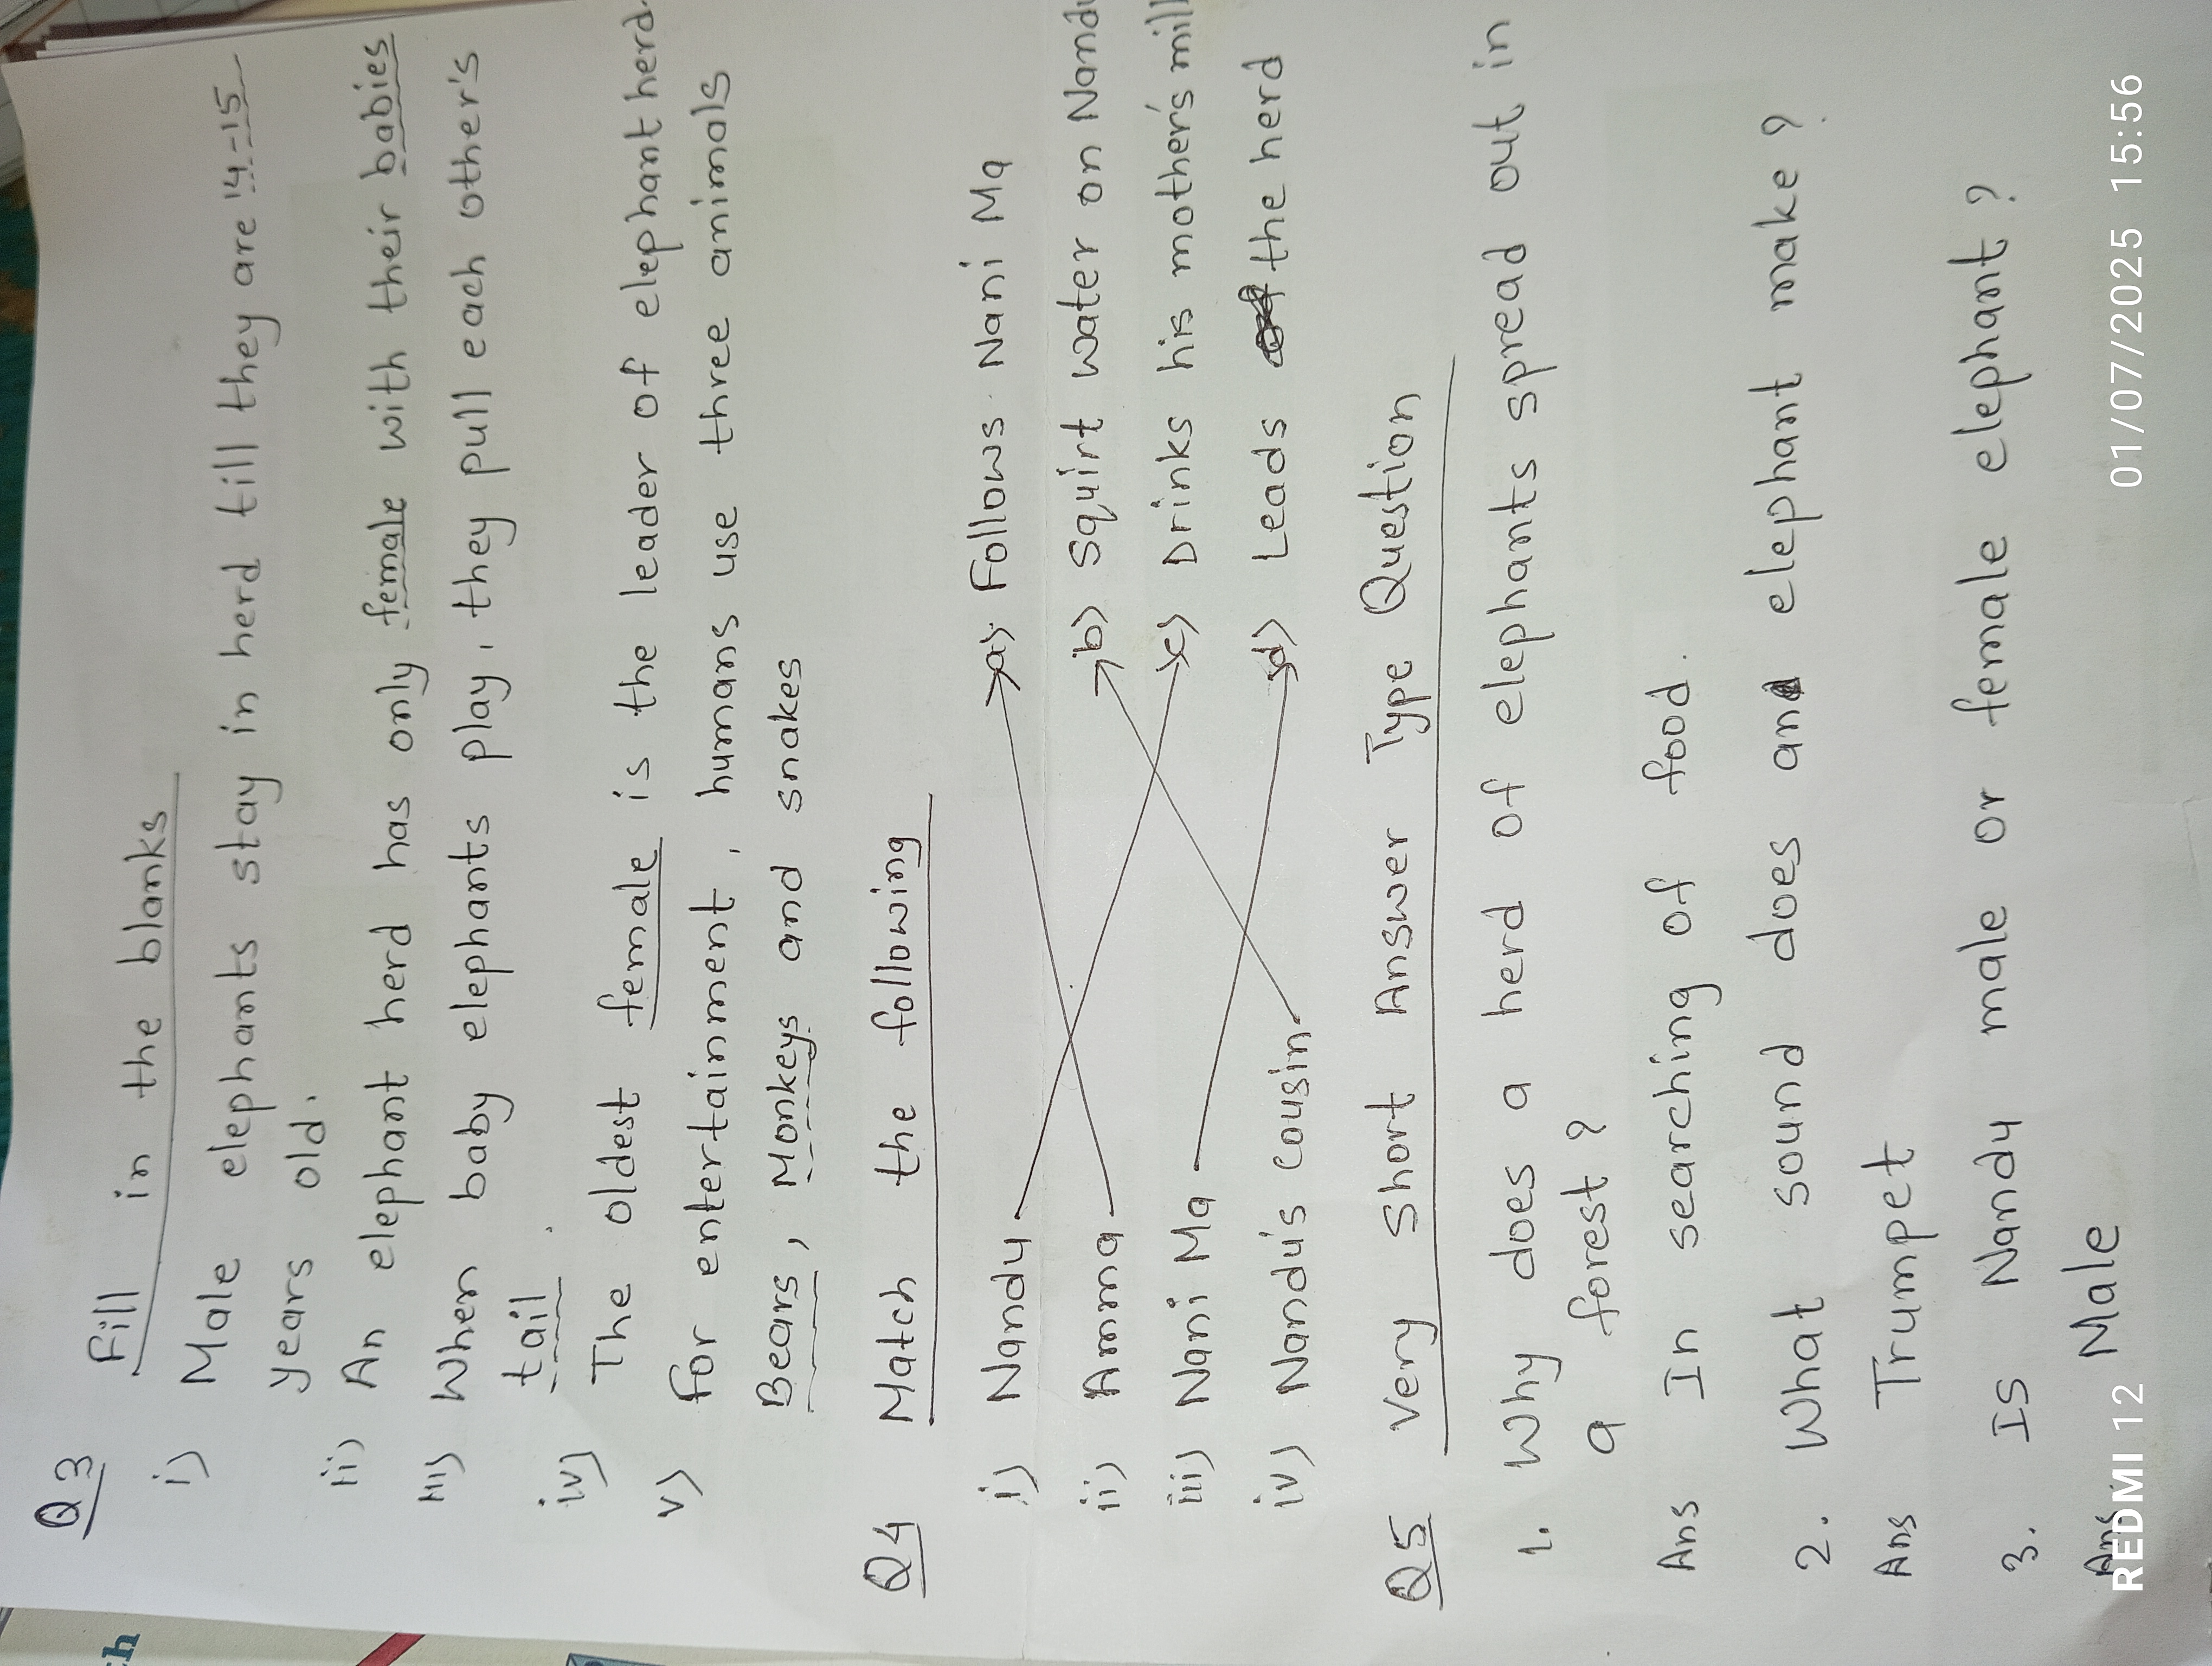 Q3 Fill in the blanks
i) Male elephants stay in herd till they are 14-15
years old.
ii) An elephant herd has only female with their babies
iii) When baby elephants play, they pull each other's
tail.
iv) The oldest female is the leader of elephant herd.
v) For entertainment, humans use three animals
Bears, Monkeys and snakes
Q4 Match the following
i) Nandu a) Follows Nani Ma
ii) Amma b) Squirt water on Nandu
iii) Nani Ma c) Drinks his mother's
iv) Nandu's cousin d) Leads the herd
Q5 Very Short Answer Type Question
1. Why does a herd of elephants spread out in
a forest?
Ans In searching of food.
2. What sound does an elephant make?
Ans Trumpet
3. Is Nandu male or female elephant?
Ans. Male
REDMI 12 01/07/2025 15:56
ch